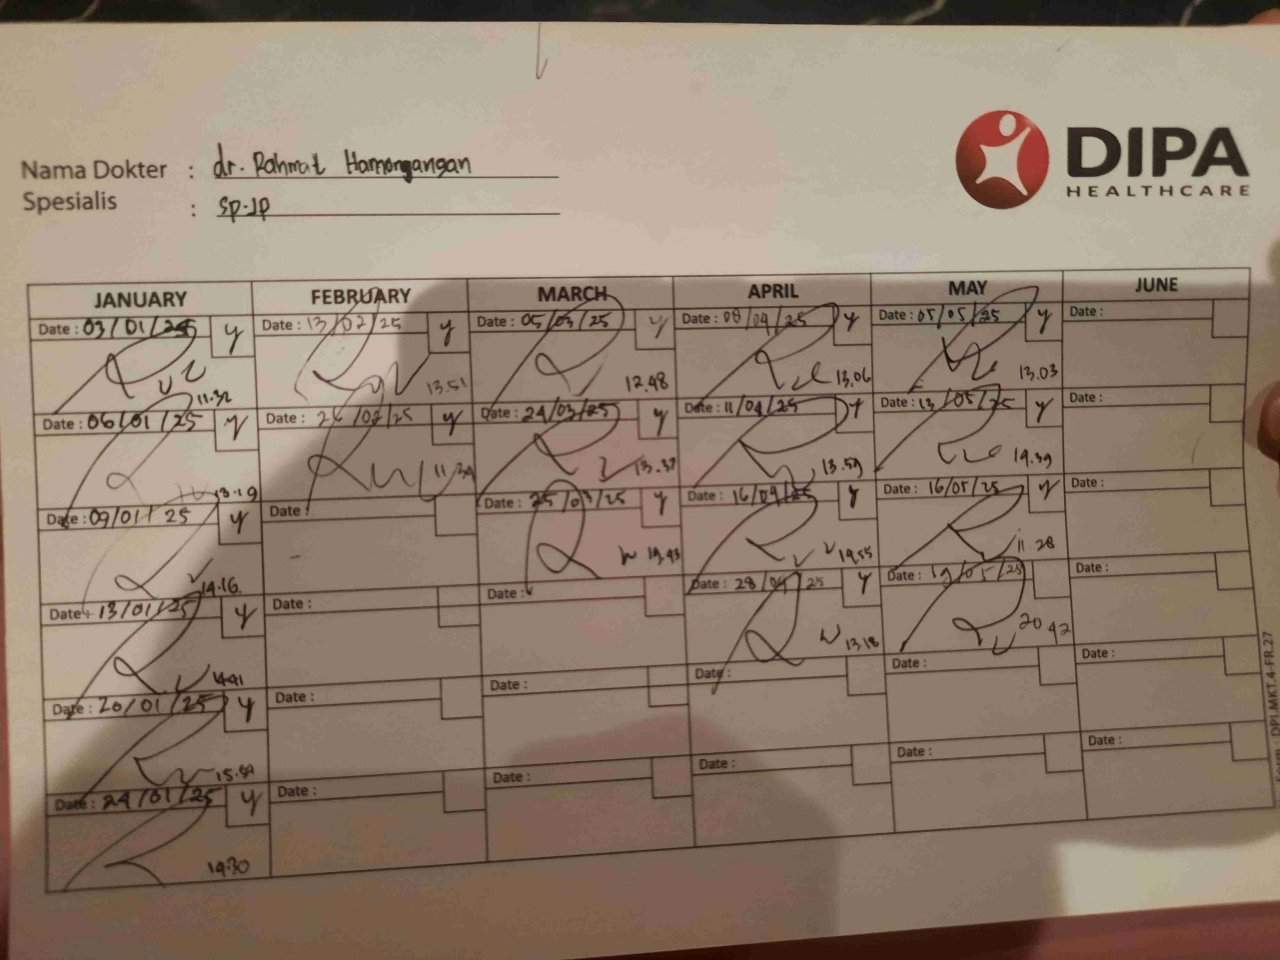 DIPA
HEALTHCARE
Nama Dokter : dr. Rahmat Hamongangan
Spesialis : SP.JP
JANUARY FEBRUARY MARCH APRIL MAY JUNE
Date : 03/01/25 y Date : 13/02/25 y Date : 05/03/25 y Date : 08/04/25 y Date : 05/05/25 y Date :
11.32 13.51 12.48 13.06 13.03
Date : 06/01/25 y Date : 26/02/25 y Date : 24/03/25 y Date : 11/04/25 y Date : 13/05/25 y Date :
13.19 11.39 13.37 13.59 14.39
Date : 09/01/25 y Date : Date : 25/03/25 y Date : 16/04/25 y Date : 16/05/25 y Date :
14.16 14.43 14.55 11 28
Date : 13/01/25 y Date : Date : Date : 28/04/25 y Date : 19/05/25 Date :
14.41 13.18 20 42
Date : 20/01/25 y Date : Date : Date : Date : Date :
15.39
Date : 24/01/25 y Date : Date : Date : Date : Date :
14.30
DPI.MKT.4-FR.27